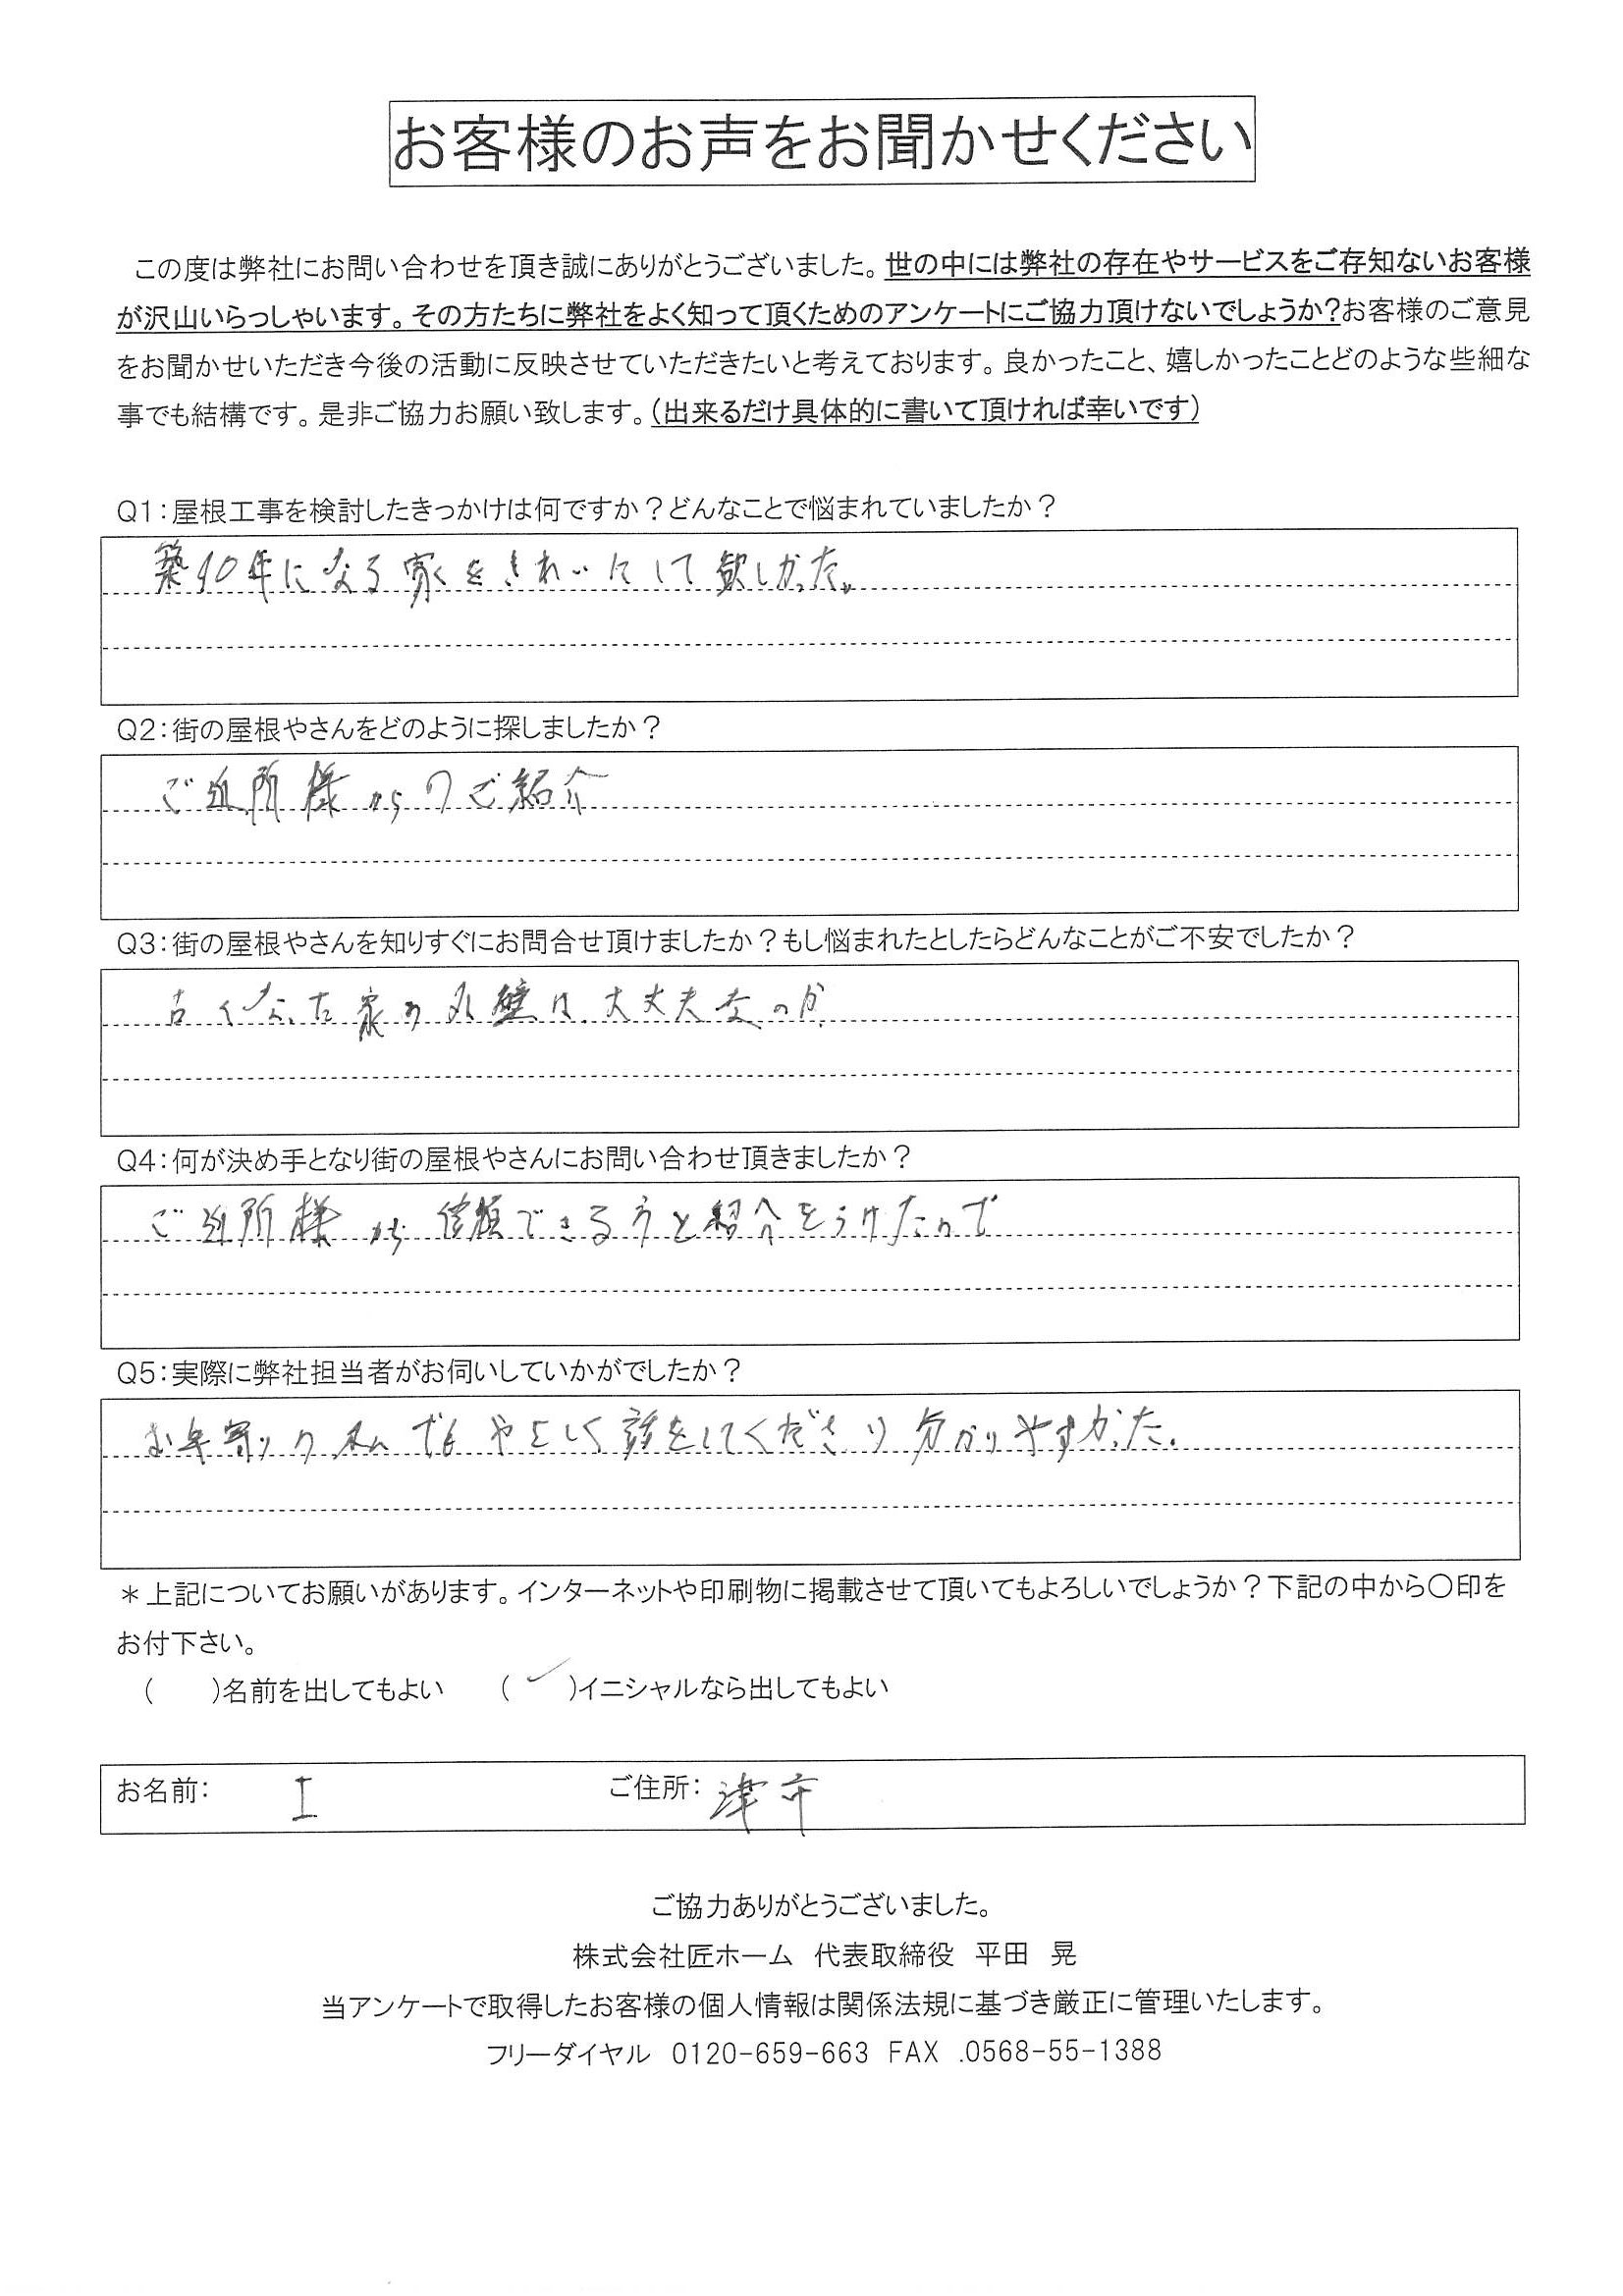 お客様のお声をお聞かせください
この度は弊社にお問い合わせを頂き誠にありがとうございました。世の中には弊社の存在やサービスをご存知ないお客様
が沢山いらっしゃいます。その方たちに弊社をよく知って頂くためのアンケートにご協力頂けないでしょうか?お客様のご意見
をお聞かせいただき今後の活動に反映させていただきたいと考えております。良かったこと、嬉しかったことどのような些細な
事でも結構です。是非ご協力お願い致します。(出来るだけ具体的に書いて頂ければ幸いです)
Q1:屋根工事を検討したきっかけは何ですか?どんなことで悩まれていましたか?
築40年になる家をきれいにして欲しかった。
Q2:街の屋根やさんをどのように探しましたか?
ご近所様からのご紹介
Q3:街の屋根やさんを知りすぐにお問合せ頂けましたか?もし悩まれたとしたらどんなことがご不安でしたか?
古くなった家の外壁は大丈夫なのか
Q4:何が決め手となり街の屋根やさんにお問い合わせ頂きましたか?
ご近所様から信頼できる方と紹介をうけたので
Q5:実際に弊社担当者がお伺いしていかがでしたか?
お年寄りの私でもやさしく話をしてくださり分かりやすかった。
＊上記についてお願いがあります。インターネットや印刷物に掲載させて頂いてもよろしいでしょうか?下記の中から〇印を
お付下さい。
(　　)名前を出してもよい　(✓)イニシャルなら出してもよい
お名前: I　ご住所: 津市
ご協力ありがとうございました。
株式会社匠ホーム　代表取締役　平田　晃
当アンケートで取得したお客様の個人情報は関係法規に基づき厳正に管理いたします。
フリーダイヤル 0120-659-663 FAX .0568-55-1388